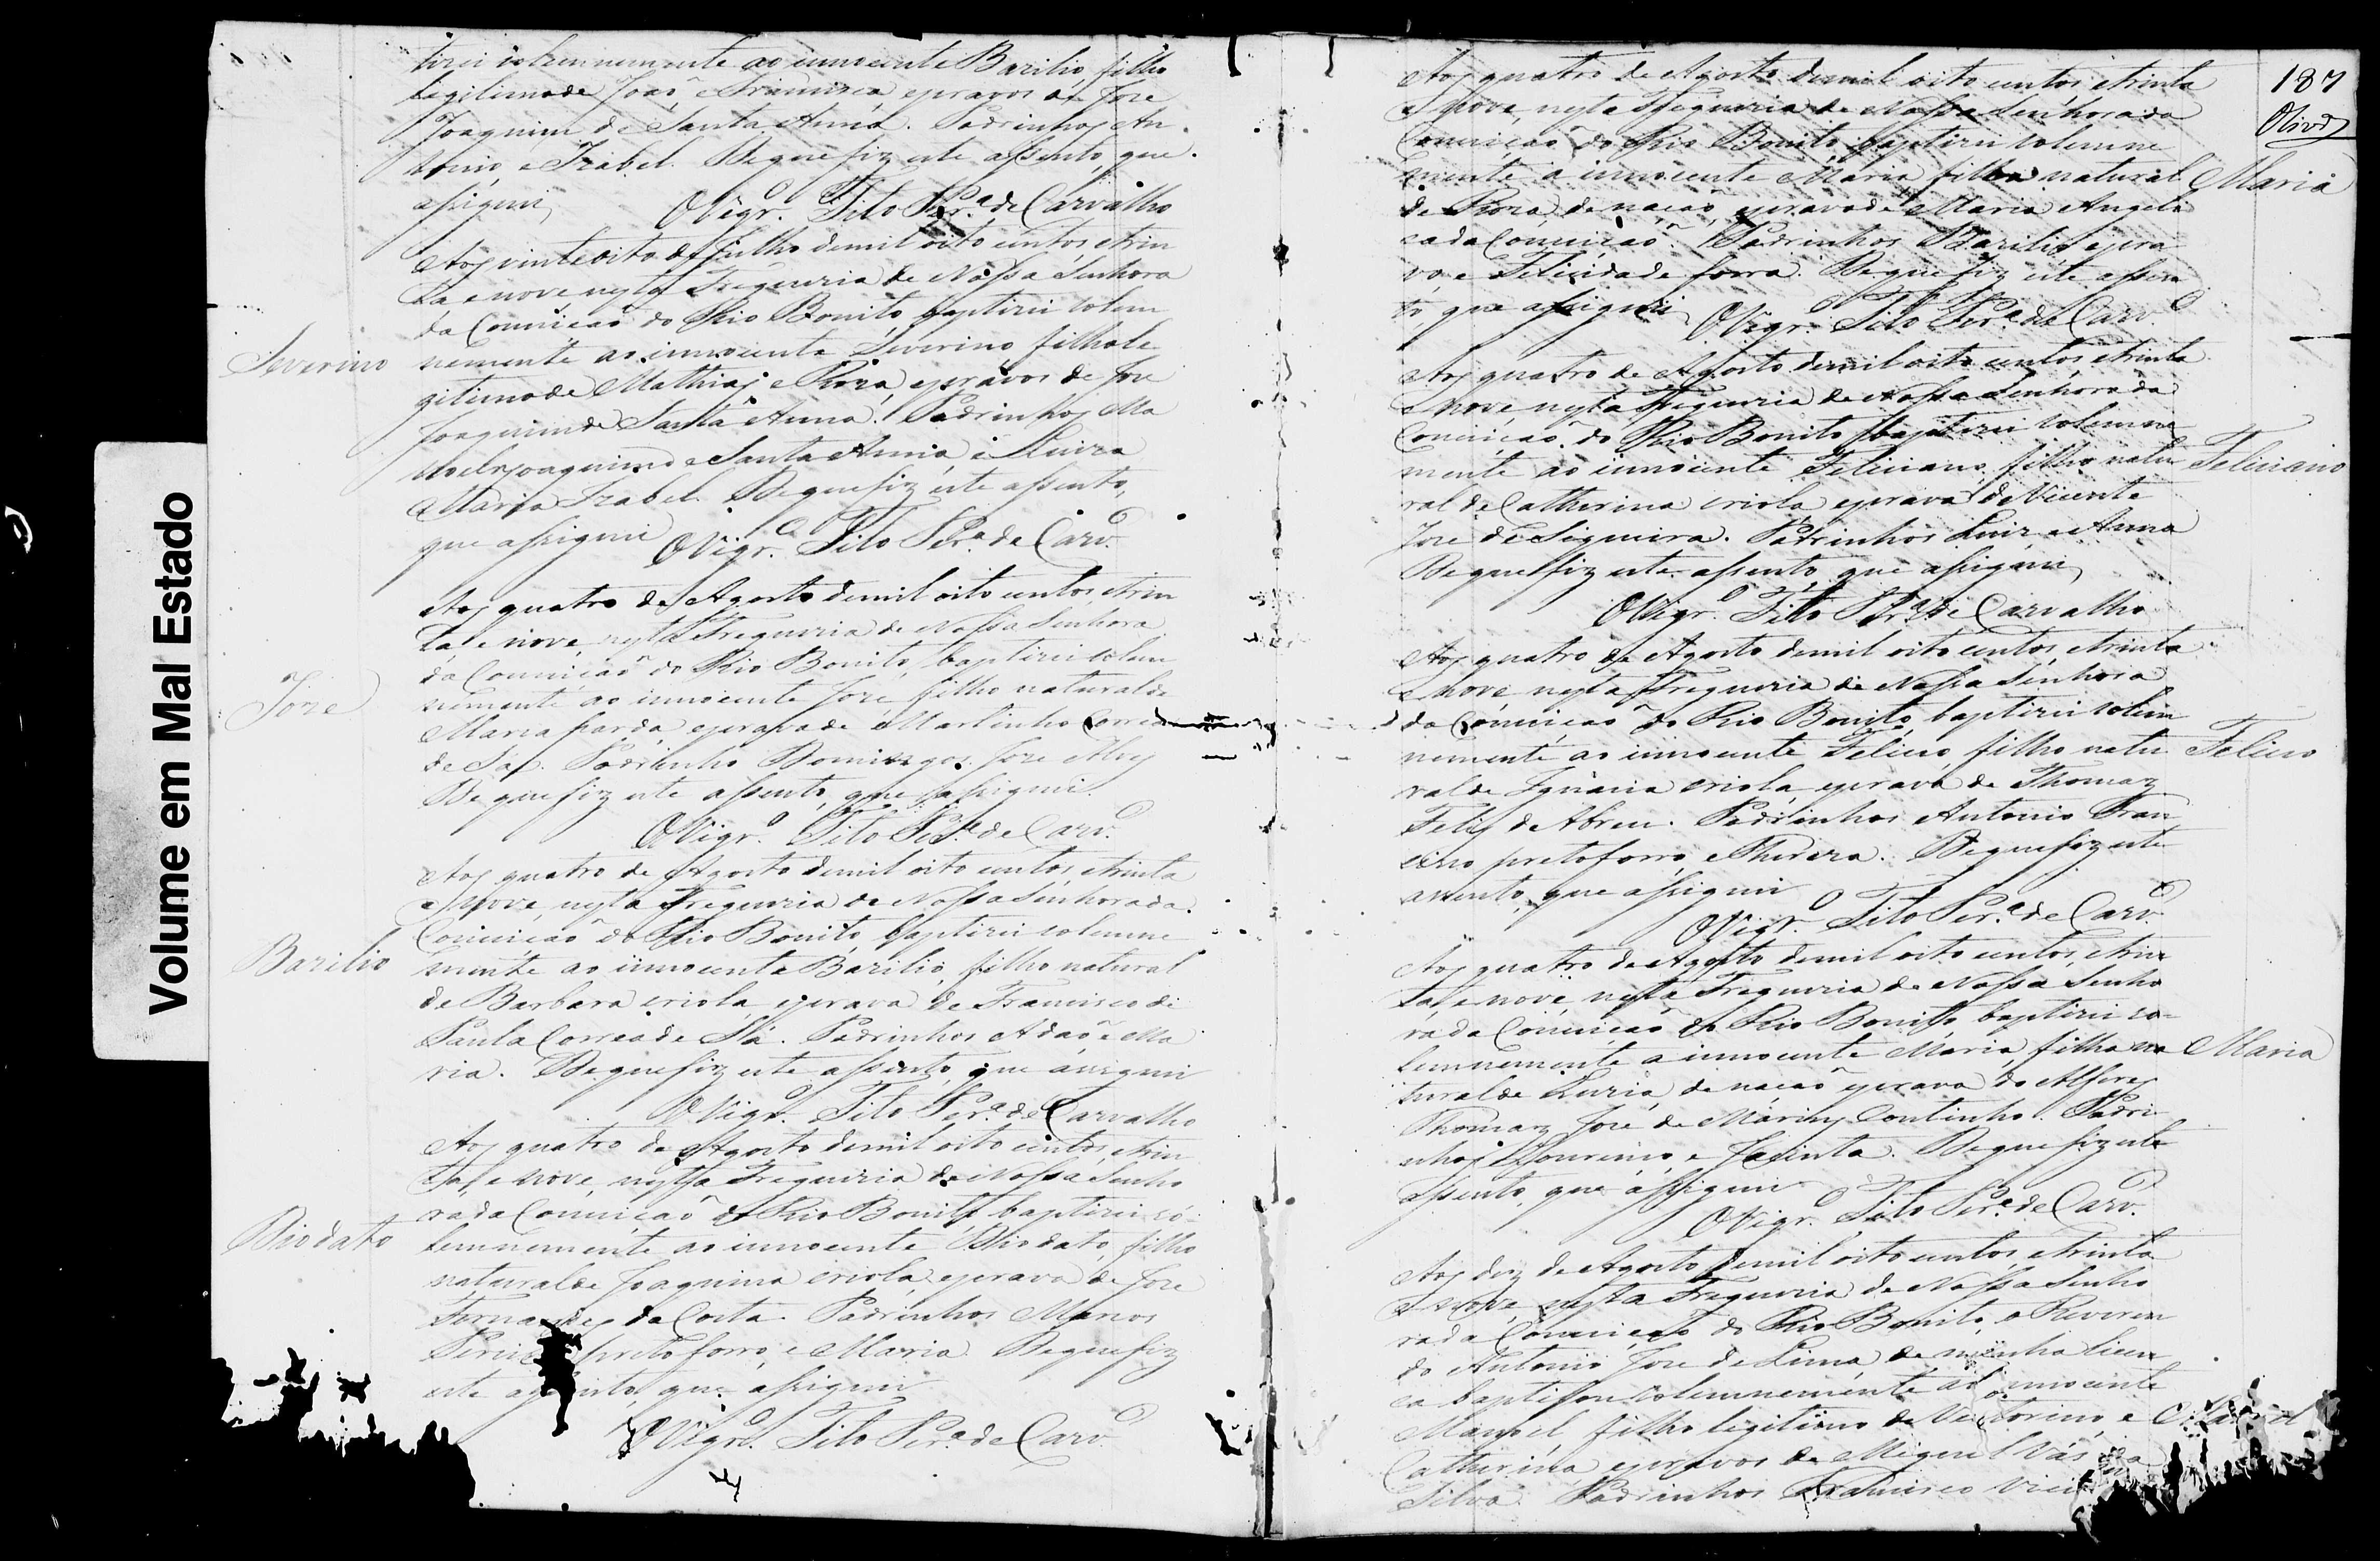 Volume em Mal Estado
tizei solemnemente ao innocente Bazilio, filho
legitimo de João, e Francisca, escravos de Joze
Joaquim de Santa Anna. Padrinhos An
tonio, e Izabel. De que fiz este assento, que
assignei
O Vigr.º Tito Per.ª de Carvalho
Aos vinte oito de Julho de mil oito centos, e trin
ta, e nove, nesta Freguezia de Nossa Senhora
da Conceicaõ do Rio Bonito, baptizei solem
Severino
nemente ao innocente Severino, filho le
gitimo de Mathias, e Roza, escravos de Joze
Joaquim de Santa Anna. Padrinhos Ma
noel Joaquim de Santa Anna, e Luiza
Maria Izabel. De que fiz este assento,
que assignei
O Vigr.º Tito Per.ª de Carv.º
Aos quatro de Agosto de mil oito centos, e trin
ta, e nove, nesta Freguezia de Nossa Senhora
da Conceicaõ do Rio Bonito, baptizei solem
Joze
nemente ao innocente Joze, filho natural de
Maria parda, escrava de Martinho Correa
de Sá. Padrinho Domingos Joze Alves
De que fiz este assento, que assignei.
O Vigr.º Tito Per.ª de Carv.º
Aos quatro de Agosto de mil oito centos, e trinta
e nove, nesta Freguezia de Nossa Senhora da
Conceicaõ do Rio Bonito, baptizei solemne
Bazilio
mente ao innocente Bazilio, filho natural
de Barbara criola, escrava de Francisco de
Paula Correa de Sá. Padrinhos Adaõ, e Ma
ria. De que fiz este assento, que assignei
O Vigr.º Tito Per.ª de Carvalho
Aos quatro de Agosto de mil oito centos, e trin
ta, e nove, nesta Freguezia de Nossa Senho
ra da Conceicaõ do Rio Bonito, baptizei so
Diodato
lemnemente ao innocente Diodato, filho
natural de Joaquina criola, escrava de Joze
Fernandes da Costa. Padrinhos Marcos
preto forro, e Maria. De que fiz
este assento, que assignei
O Vigr.º Tito Per.ª de Carv.º
187
Aos quatro de Agosto de mil oito centos, e trinta
e nove, nesta Freguezia de Nossa Senhora da
Conceicaõ do Rio Bonito, baptizei solemne
mente a innocente Maria, filha natural
Maria
de Roza, de nacaõ, escrava de Maria Angeli
ca da Conceicaõ. Padrinhos Bazilio escra
vo, e Felicidade forra. De que fiz este assen
to, que assignei
O Vigr.º Tito Per.ª de Carv.º
Aos quatro de Agosto de mil oito centos, e trinta
e nove, nesta Freguezia de Nossa Senhora da
Conceicaõ do Rio Bonito, baptizei solemne
mente ao innocente Feliciano, filho natu
Feliciano
ral de Catherina criola, escrava de Vicente
Joze de Siqueira. Padrinhos Luiz, e Anna
De que fiz este assento, que assignei
O Vigr.º Tito Per.ª de Carvalho
Aos quatro de Agosto de mil oito centos, e trinta
e nove, nesta Freguezia de Nossa Senhora
da Conceicaõ do Rio Bonito, baptizei solem
nemente ao innocente Felicio, filho natu
Felicio
ral de Ignacia criola, escrava de Thomaz
Felis de Abreu. Padrinhos Antonio Fran
cisco preto forro, e Thereza. De que fiz este
assento, que assignei
O Vigr.º Tito Per.ª de Carv.º
Aos quatro de Agosto de mil oito centos, e trin
ta, e nove, nesta Freguezia de Nossa Senho
ra da Conceicaõ do Rio Bonito, baptizei so-
lemnemente a innocente Maria, filha na
Maria
tural de Luzia, de nacaõ, escrava do Alferes
Thomaz Joze de Coutinho. Padri
nhos Lourenço, e Jacinta. De que fiz este
assento, que assignei
O Vigr.º Tito Per.ª de Carv.º
Aos dez de Agosto de mil oito centos, e trinta
e nove, nesta Freguezia de Nossa Senho
ra da Conceicaõ do Rio Bonito, o Reveren
do Antonio Joze de Lima, de minha licen
ca baptizou solemnemente ao innocente
Manoel, filho legitimo de Victorino, e
Catherina, escravos de Miguel Vás da
Silva. Padrinhos Francisco